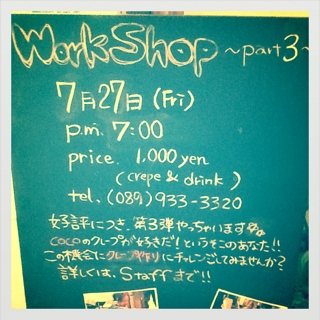 WorkShop ~part3~
7月27日(Fri)
p.m. 7:00
price. 1,000yen
(crepe & drink)
tel. (089)933-3320
好評につき、第3弾やっちゃいます
cocoのクレープが好きだ!というそこのあなた!!
この機会にクレープ作りにチャレンジしてみませんか?
詳しくは、Staffまで!!